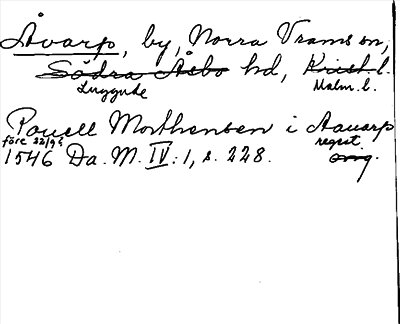 Åvarp, by, Norra Vrams sn,
Södra Åsbo hd, Krist. l.
Luggude Malm. l.
Pouell Morthensen i Aauarp
före 22/9 regest.
1546 Da. M. IV: 1, s. 228. orig.